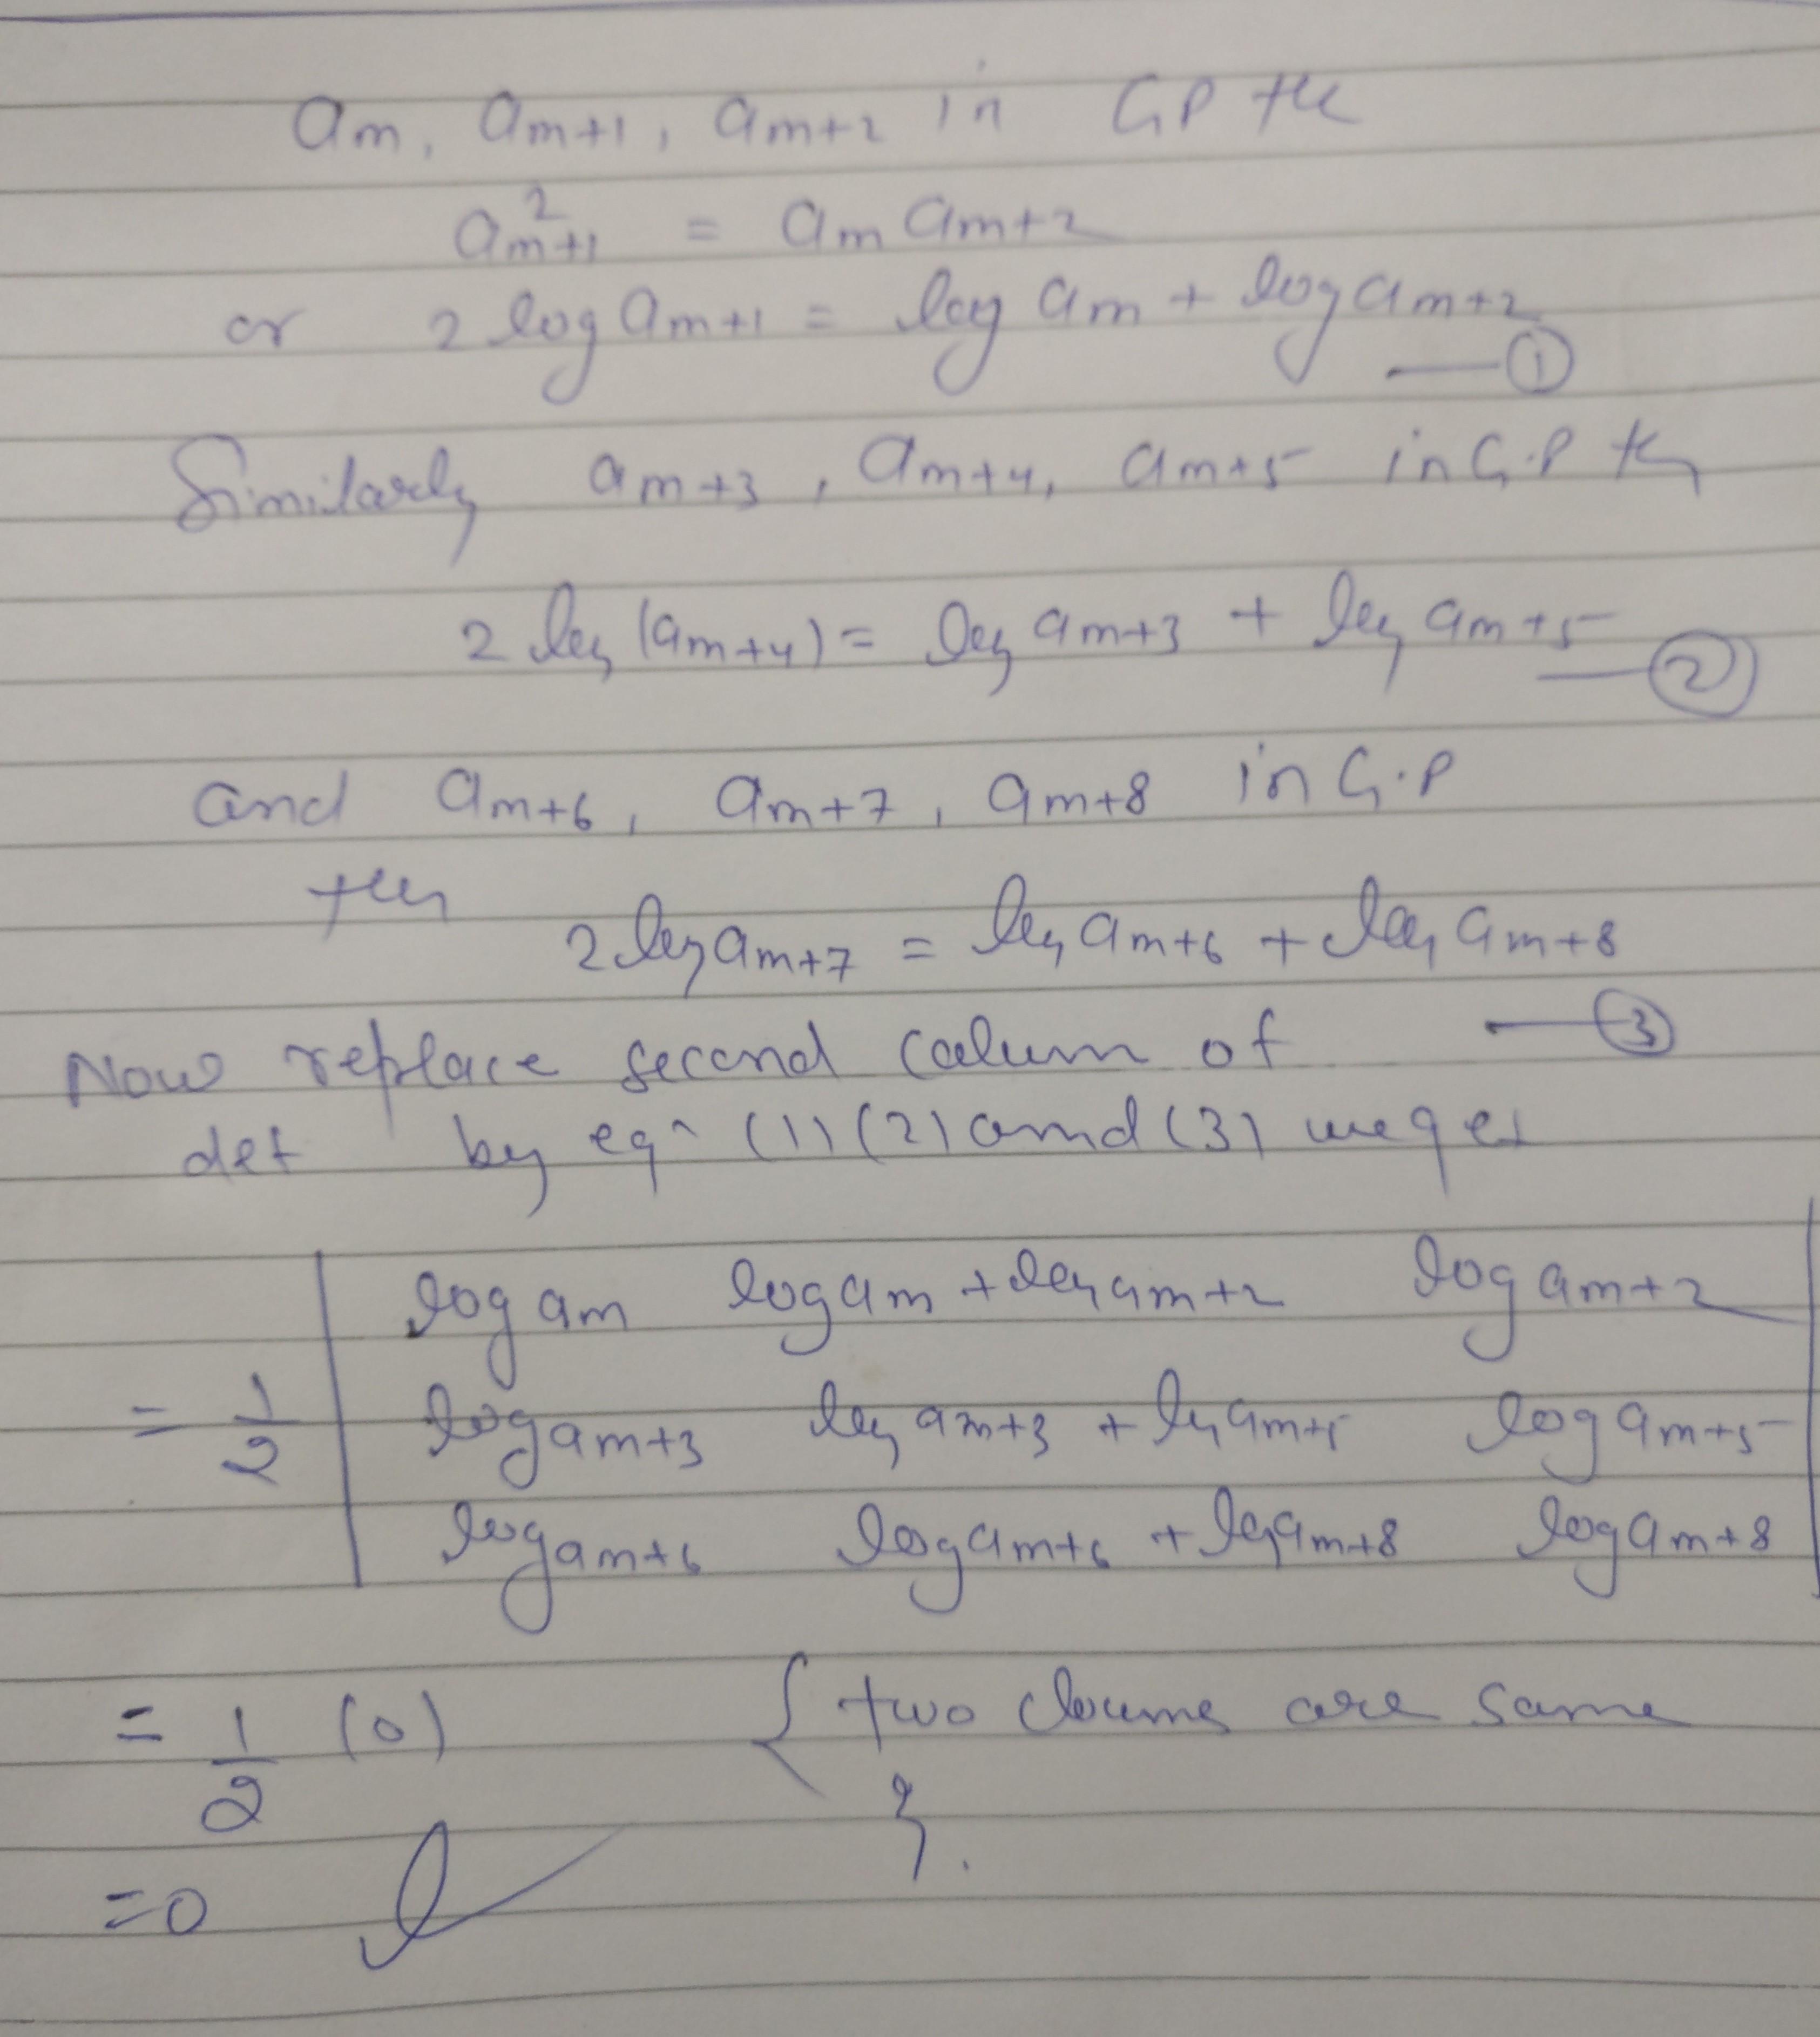 am, am+1, am+2 in GP the
a²m+1 = am am+2
or 2 log am+1 = log am + log am+2 —①
Similarly am+3, am+4, am+5 in G.P
2 log (am+4) = log am+3 + log am+5 —②
and am+6, am+7, am+8 in G.P
then
2 log am+7 = log am+6 + log am+8
—③
Now replace second calum of
det by eqn (1) (2) and (3) we get
| log am log am + log am+2 log am+2 |
= 1/2 | log am+3 log am+3 + log am+5 log am+5 |
| log am+6 log am+6 + log am+8 log am+8 |
= 1/2 (0) { two are same
}.
=0